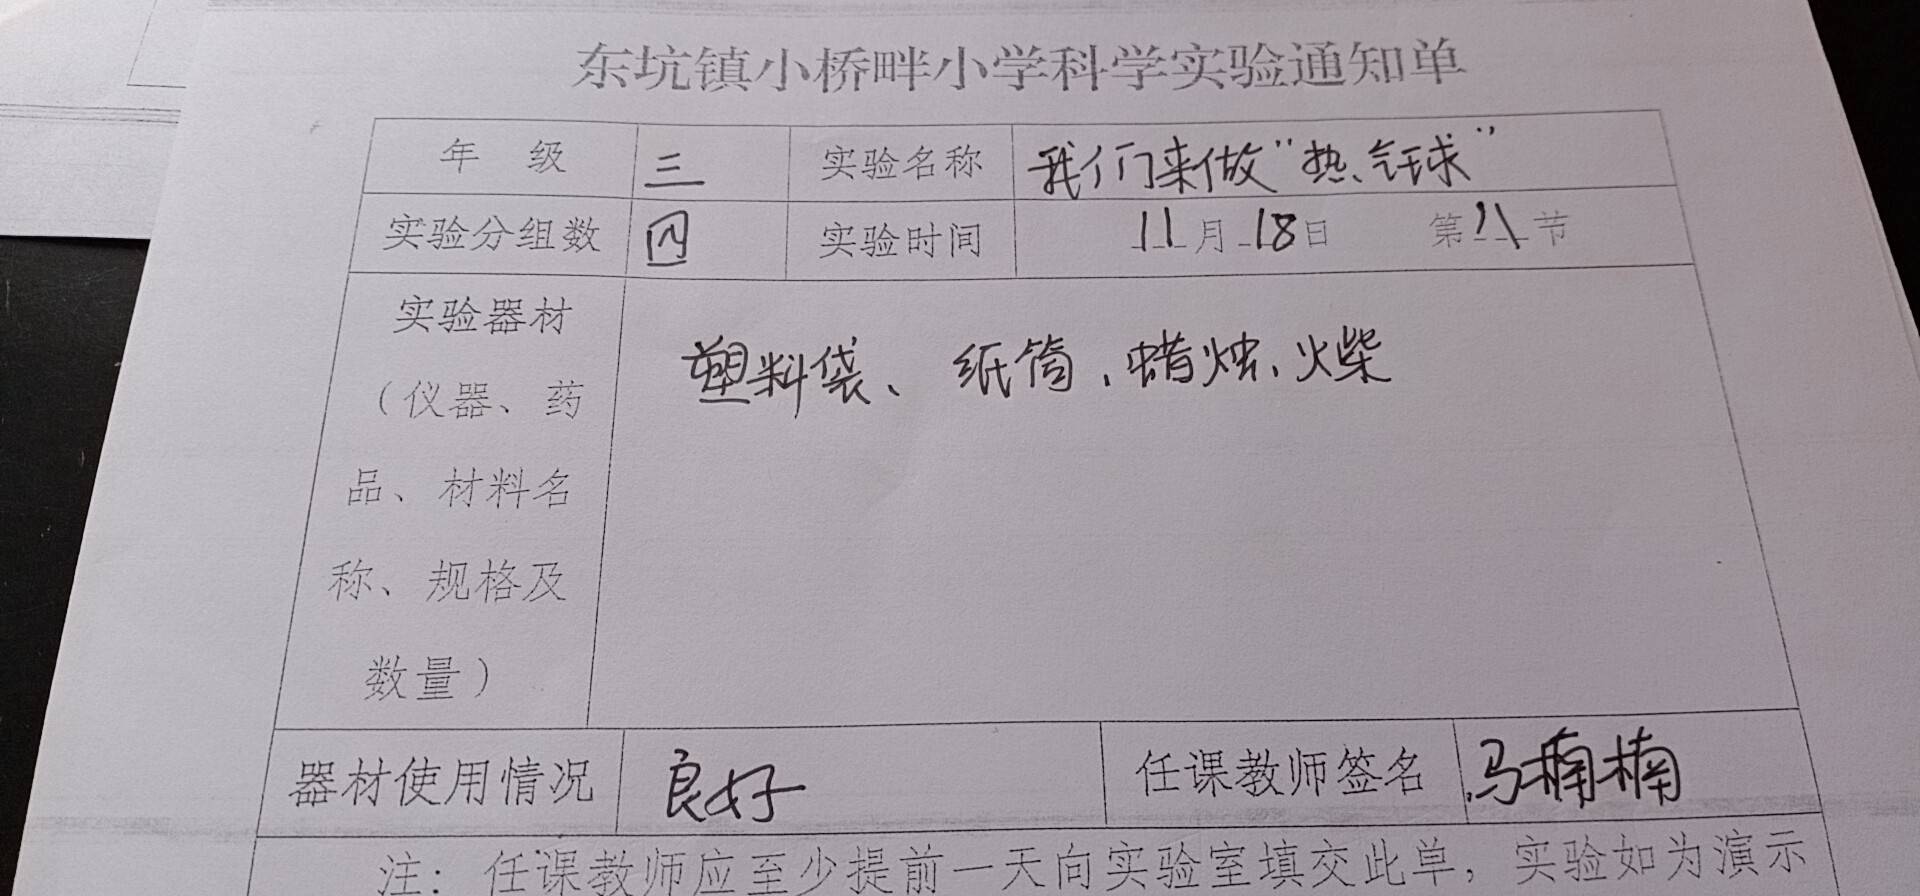 东坑镇小桥畔小学科学实验通知单
年 级 三 实验名称 我们来做"热气球"
实验分组数 四 实验时间 11月18日 第八节
实验器材
（仪器、药
品、材料名
称、规格及
数量）
塑料袋、纸筒、蜡烛、火柴
器材使用情况 良好 任课教师签名 马楠楠
注：任课教师应至少提前一天向实验室填交此单，实验如为演示